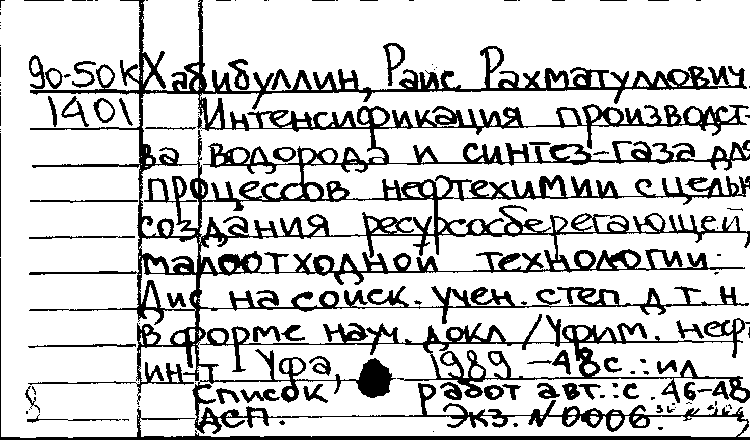 90-50К Хабибуллин, Раис Рахматуллович
1401 Интенсификация производст-
ва водорода и синтез-газа для
процессов нефтехимии с целью
создания ресурсосберегающей,
малоотходной технологии.
Дис. на соиск. учен. степ. д.т.н.
в форме науч. докл./Уфим. нефт.
ин-т - Уфа, 1989. -48с.:ил
Список работ авт.:с.46-48
8 ДСП. Экз. N0006.